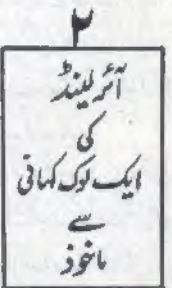 ۲
آئرلینڈ
کی
ایک لوک کہانی
سے
ماخوذ